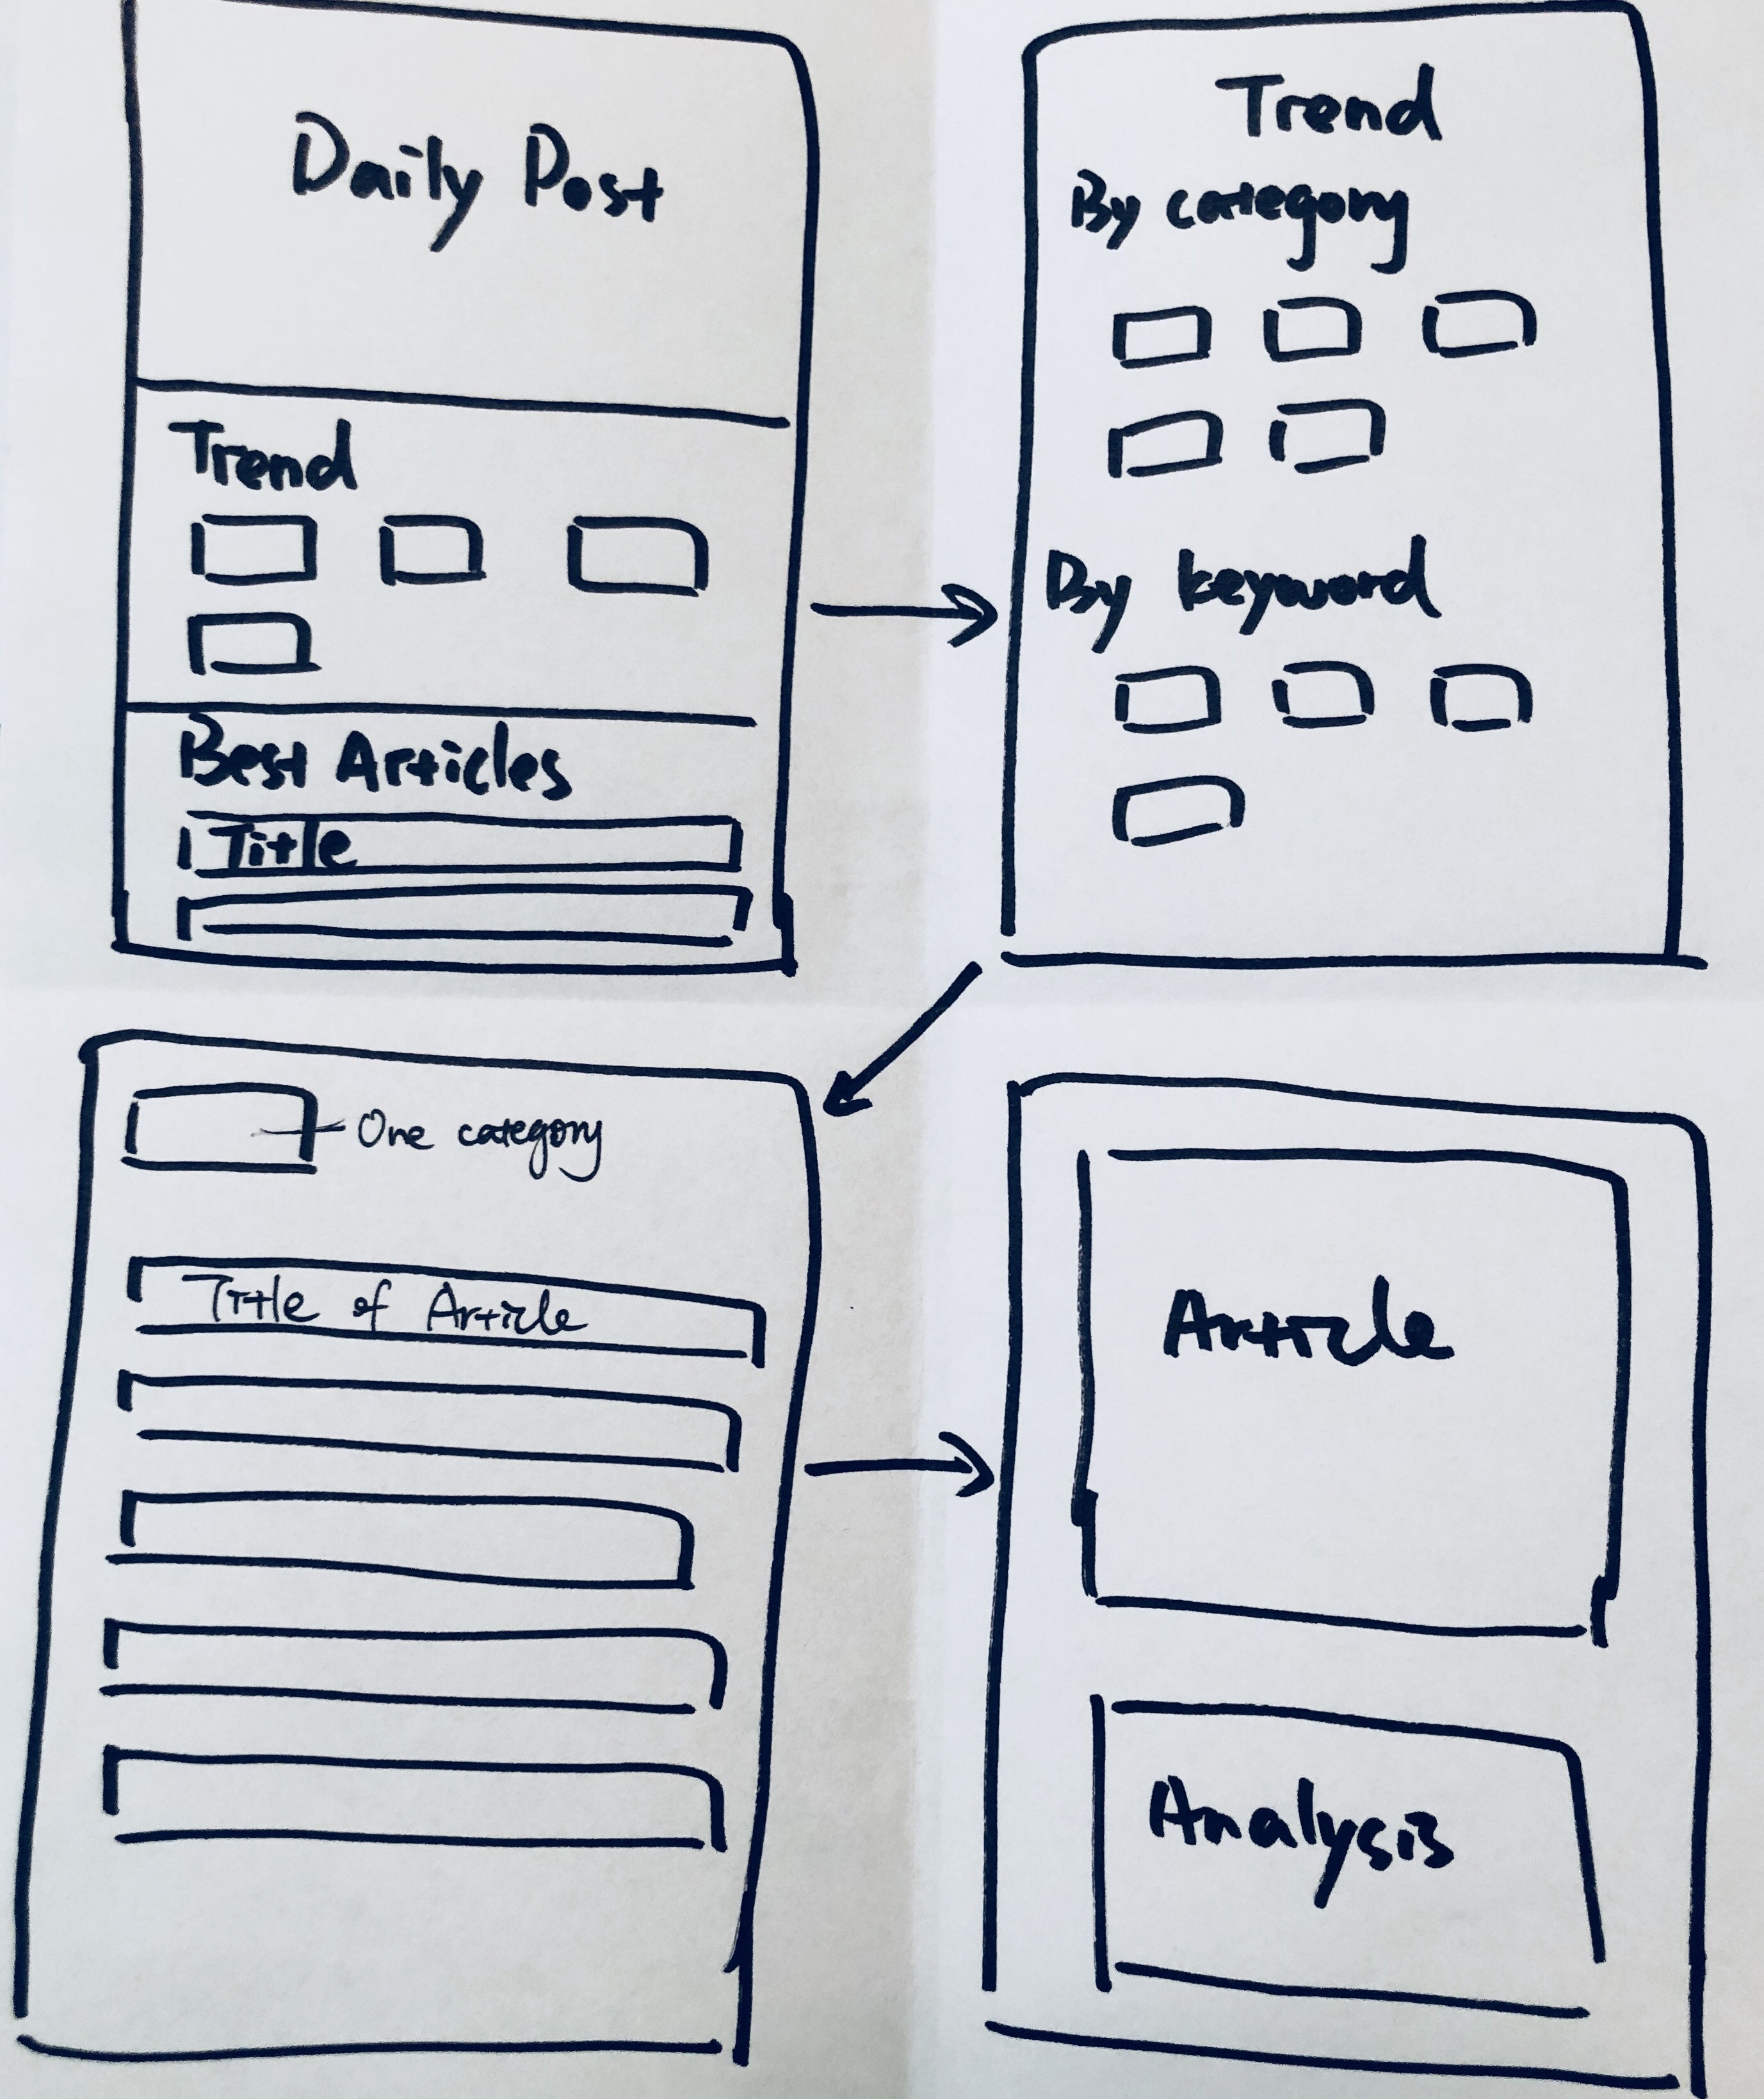 Daily Post
Trend
Best Articles
Title
Trend
By category
By keyword
One category
Title of Article
Article
Analysis